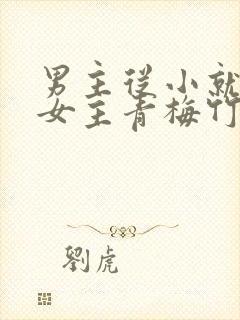 男主從小就
女主青梅竹
劉虎